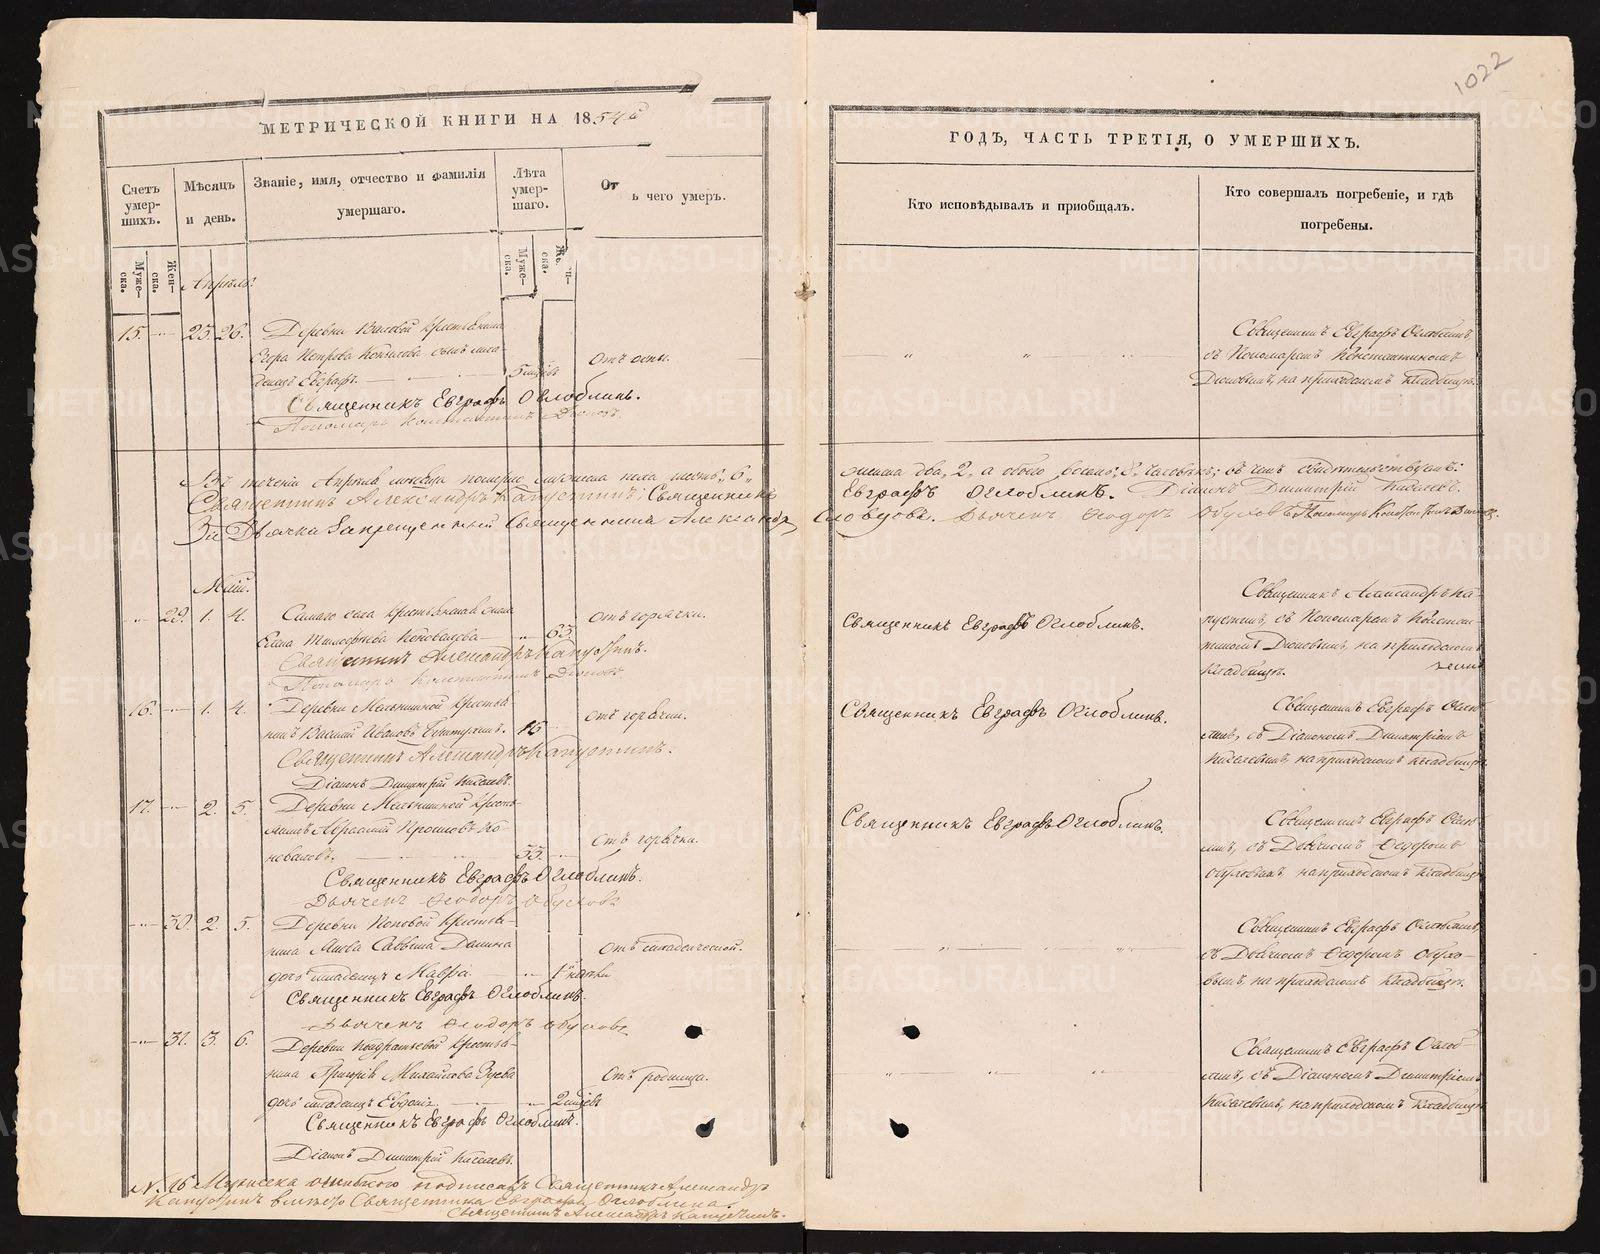 1022
МЕТРИЧЕСКОЙ КНИГИ НА 1854й
Счетъ умер-шихъ.
Мѣсяцъ и день.
Званіе, имя, отчество и фамилія умершаго.
Лѣта умер-шаго.
Отъ чего умеръ.
Муже-ска.
Жен-ска.
Муже-ска.
Апрѣль.
15. 23. 26. Деревни Крестьянина
Егора Петрова сынъ мла-
денецъ Евграфъ. 5 мцовъ Отъ оспы.
Священникъ Евграфъ Оглоблинъ.
Пономарь Константинъ
Въ теченіи Апрѣля мѣсяца померло мужеска пола шесть, 6,
Священникъ Александръ Капустинъ. Священникъ
За Дьячка Запрещенный Священникъ Александръ
Май.
29. 1. 4. Самаго села Крестьянская
Коновалова 63. Отъ горячки.
Священникъ Александръ Капустинъ.
Пономарь Константинъ
16. 1. 4. Деревни Крестья-
нинъ Василій Ивановъ 16 отъ горячки.
Священникъ Александръ Капустинъ.
Діаконъ Димитрій Киселевъ.
17. 2. 5. Деревни Кресть-
янинъ Ко-
новаловъ. 55. Отъ горячки.
Священникъ Евграфъ Оглоблинъ.
Дьячекъ Ѳеодоръ Обуховъ
30. 2. 5. Деревни Поповой Крестья-
нина Саввина
дочь младенецъ Мавра. Отъ младенческой.
Священникъ Евграфъ Оглоблинъ.
Дьячекъ Ѳеодоръ Обуховъ
31. 3. 6. Деревни Крестья-
нина Григорія Михайлова Зуева
дочь младенецъ Евдокія. 2 мцовъ Отъ родимца.
Священникъ Евграфъ Оглоблинъ.
Діаконъ Димитрій Киселевъ.
№ 16 Мужеска ошибкою подписалъ Священникъ Александръ
Капустинъ вмѣсто Священника Евграфа Оглоблина.
Священникъ Александръ Капустинъ.
ГОДЪ, ЧАСТЬ ТРЕТІЯ, О УМЕРШИХЪ.
Кто исповѣдывалъ и пріобщалъ.
Кто совершалъ погребеніе, и гдѣ погребены.
Священникъ Евграфъ Оглоблинъ
съ Пономаремъ Константиномъ
на приходскомъ кладбищѣ.
женска два, 2, а обоего восемь, 8, человѣкъ; въ чемъ свидѣтельствуемъ:
Евграфъ Оглоблинъ. Діаконъ Димитрій Киселевъ.
Словцовъ. Дьячекъ Ѳеодоръ Обуховъ Пономарь
Священникъ Евграфъ Оглоблинъ.
Священникъ Александръ Ка-
пустинъ, съ Пономаремъ Констан-
тиномъ на приходскомъ
кладбищѣ.
Священникъ Евграфъ Оглоблинъ.
Священникъ Евграфъ Оглоб-
линъ, съ Діакономъ Димитріемъ
Киселевымъ, на приходскомъ кладбищѣ.
Священникъ Евграфъ Оглоблинъ.
Священникъ Евграфъ Оглоб-
линъ, съ Дьячкомъ Ѳеодоромъ
Обуховымъ на приходскомъ кладбищѣ.
Священникъ Евграфъ Оглоблинъ,
съ Дьячкомъ Ѳеодоромъ Обухо-
вымъ, на приходскомъ кладбищѣ.
Священникъ Евграфъ Оглоб-
линъ, съ Діакономъ Димитріемъ
Киселевымъ, на приходскомъ кладбищѣ.
METRIKI.GASO-URAL.RU